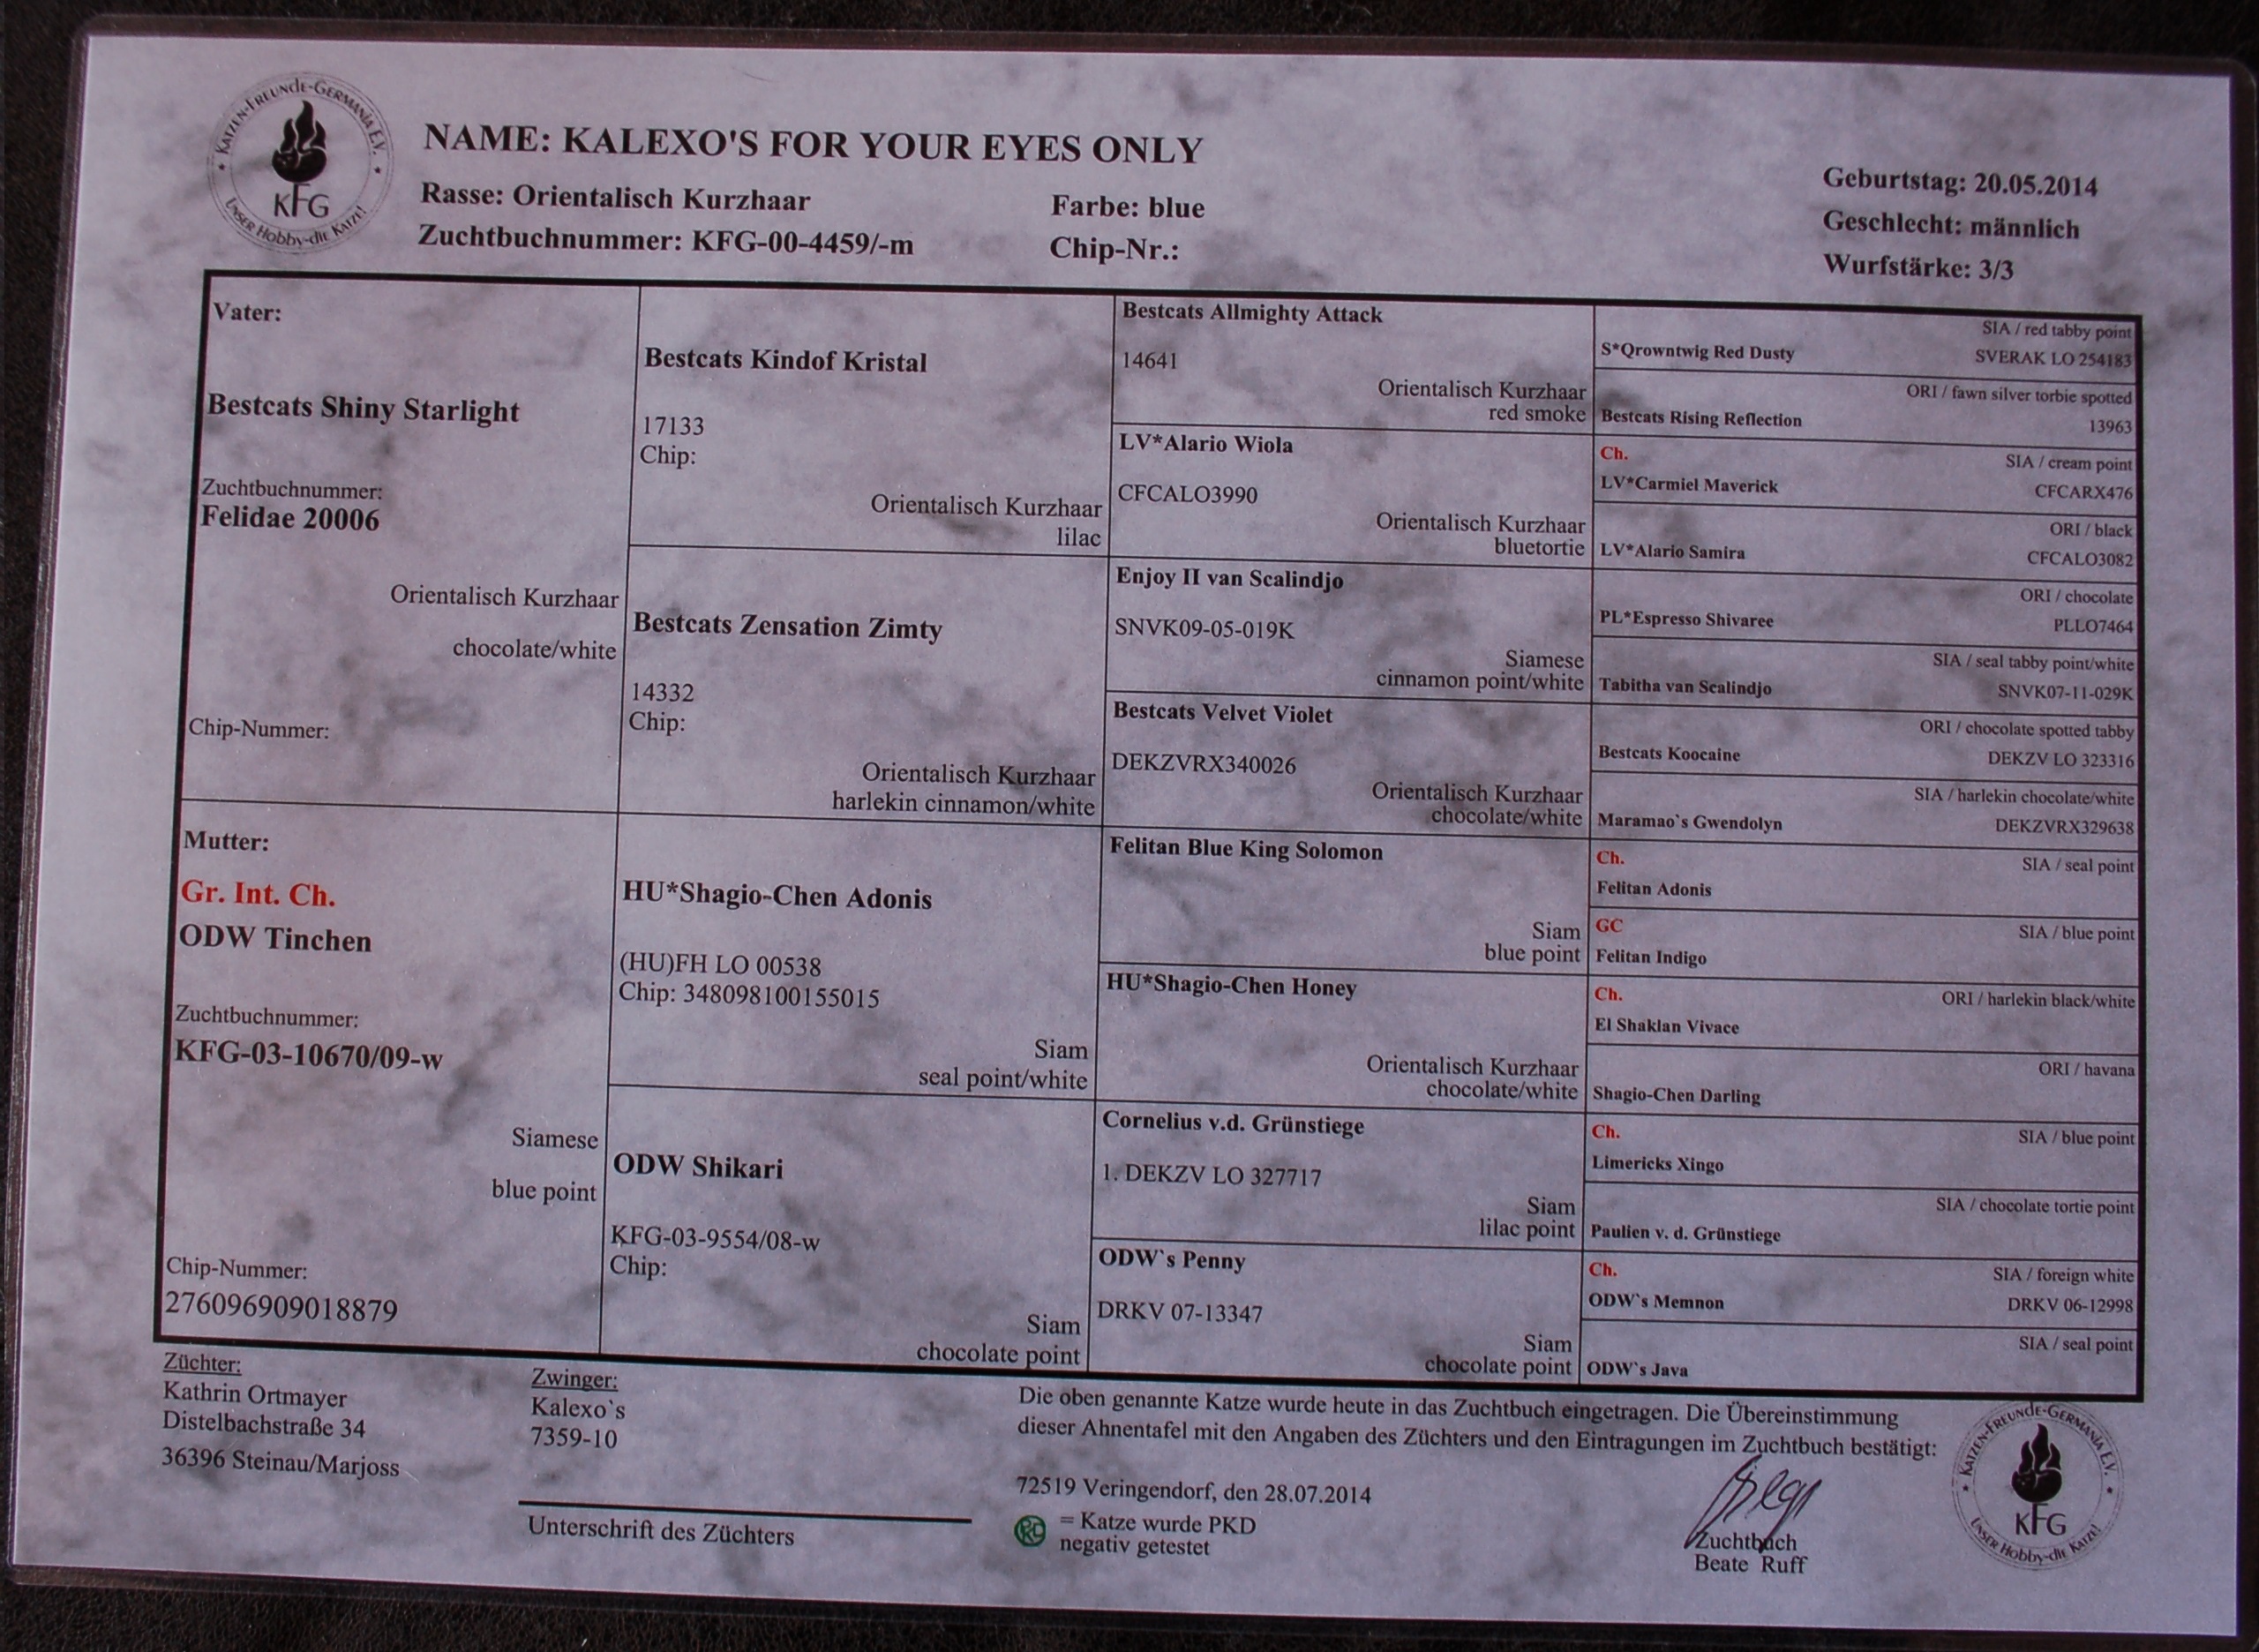 KATZEN-FREUNDE-GERMANIA E.V.
KFG
UNSER HOBBY-DIE KATZE!
NAME: KALEXO'S FOR YOUR EYES ONLY
Rasse: Orientalisch Kurzhaar
Farbe: blue
Zuchtbuchnummer: KFG-00-4459/-m
Chip-Nr.:
Geburtstag: 20.05.2014
Geschlecht: männlich
Wurfstärke: 3/3
Vater:
Bestcats Shiny Starlight
Zuchtbuchnummer:
Felidae 20006
Orientalisch Kurzhaar
chocolate/white
Chip-Nummer:
Mutter:
Gr. Int. Ch.
ODW Tinchen
Zuchtbuchnummer:
KFG-03-10670/09-w
Siamese
blue point
Chip-Nummer:
276096909018879
Bestcats Kindof Kristal
17133
Chip:
Orientalisch Kurzhaar
lilac
Bestcats Zensation Zimty
14332
Chip:
Orientalisch Kurzhaar
harlekin cinnamon/white
HU*Shagio-Chen Adonis
(HU)FH LO 00538
Chip: 348098100155015
Siam
seal point/white
ODW Shikari
KFG-03-9554/08-w
Chip:
Siam
chocolate point
Bestcats Allmighty Attack
14641
Orientalisch Kurzhaar
red smoke
LV*Alario Wiola
CFCALO3990
Orientalisch Kurzhaar
bluetortie
Enjoy II van Scalindjo
SNVK09-05-019K
Siamese
cinnamon point/white
Bestcats Velvet Violet
DEKZVRX340026
Orientalisch Kurzhaar
chocolate/white
Felitan Blue King Solomon
Siam
blue point
HU*Shagio-Chen Honey
Orientalisch Kurzhaar
chocolate/white
Cornelius v.d. Grünstiege
1. DEKZV LO 327717
Siam
lilac point
ODW`s Penny
DRKV 07-13347
Siam
chocolate point
SIA / red tabby point
S*Qrowntwig Red Dusty
SVERAK LO 254183
ORI / fawn silver torbie spotted
Bestcats Rising Reflection
13963
Ch.
SIA / cream point
LV*Carmiel Maverick
CFCARX476
ORI / black
LV*Alario Samira
CFCALO3082
ORI / chocolate
PL*Espresso Shivaree
PLLO7464
SIA / seal tabby point/white
Tabitha van Scalindjo
SNVK07-11-029K
ORI / chocolate spotted tabby
Bestcats Koocaine
DEKZV LO 323316
SIA / harlekin chocolate/white
Maramao`s Gwendolyn
DEKZVRX329638
Ch.
SIA / seal point
Felitan Adonis
GC
SIA / blue point
Felitan Indigo
Ch.
ORI / harlekin black/white
El Shaklan Vivace
ORI / havana
Shagio-Chen Darling
Ch.
SIA / blue point
Limericks Xingo
SIA / chocolate tortie point
Paulien v. d. Grünstiege
Ch.
SIA / foreign white
ODW`s Memnon
DRKV 06-12998
SIA / seal point
ODW`s Java
Züchter:
Kathrin Ortmayer
Distelbachstraße 34
36396 Steinau/Marjoss
Zwinger:
Kalexo`s
7359-10
Unterschrift des Züchters
Die oben genannte Katze wurde heute in das Zuchtbuch eingetragen. Die Übereinstimmung
dieser Ahnentafel mit den Angaben des Züchters und den Eintragungen im Zuchtbuch bestätigt:
72519 Veringendorf, den 28.07.2014
= Katze wurde PKD
negativ getestet
Zuchtbuch
Beate Ruff
KATZEN-FREUNDE-GERMANIA E.V.
KFG
UNSER HOBBY-DIE KATZE!